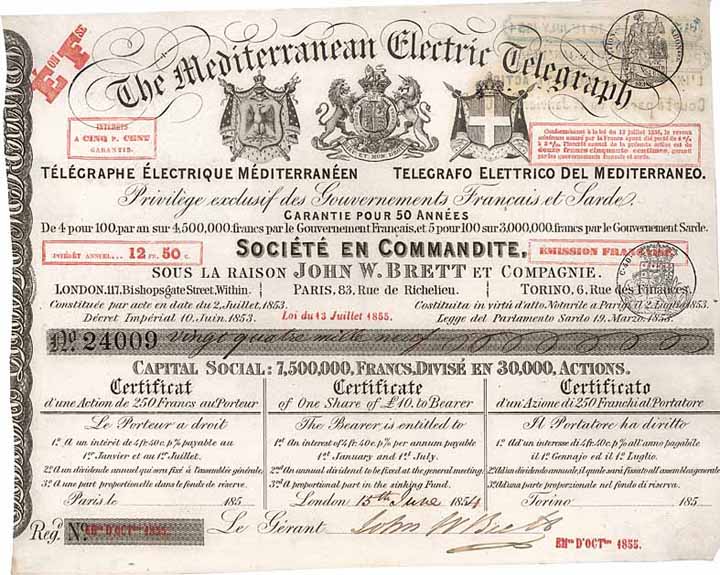 Éon Fse
The Mediterranean Electric Telegraph
INTERÊTS
A CINQ P. CENT
GARANTIS.
Conformément à la loi du 13 juillet 1855, le revenu
TÉLÉGRAPHE ÉLECTRIQUE MÉDITERRANÉEN
TELEGRAFO ELETTRICO DEL MEDITERRANEO.
Privilège exclusif des Gouvernements Français et Sarde.
GARANTIE POUR 50 ANNÉES
De 4 pour 100, par an sur 4,500,000, francs par le Gouvernement Français, et 5 pour 100 sur 3,000,000, francs par le Gouvernement Sarde.
INTÉRÊT ANNUEL... 12 FR. 50 C.
SOCIÉTÉ EN COMMANDITE,
EMISSION FRANÇAISE
SOUS LA RAISON JOHN W. BRETT ET COMPAGNIE.
LONDON. 117, Bishopsgate Street, Within.
PARIS, 83, Rue de Richelieu.
TORINO, 6, Rue des Finances.
Constituée par acte en date du 2, Juillet, 1853.
Costituita in virtú d'atto Notarile a Parigi a 2 Luglio 1853.
Décret Impérial 10, Juin, 1853.
Loi du 13 Juillet 1855.
Legge del Parlamento Sardo 19. Marzo, 1853.
No. 24009 Vingt quatre mille neuf
CAPITAL SOCIAL: 7,500,000, FRANCS, DIVISÉ EN 30,000, ACTIONS.
Certificat
d'une Action de 250 Francs au Porteur
Le Porteur a droit
1º. A un intérêt de 4 fr. 40 c. p% payable au
1er Janvier et au 1er Juillet.
2º. A un dividende annuel qui sera fixé à l'assemblée générale,
3º. A une part proportionelle dans le fonds de réserve.
Paris le 185
Certificate
of One Share of £10. to Bearer
The Bearer is entitled to
1st. An interest of 4 fr. 40 c. p% per annum payable
1st January and 1st July.
2nd. An annual dividend to be fixed at the general meeting.
3rd. A proportional part in the sinking Fund.
London 15th June 1854
Certificato
d'un' Azione di 250 Franchi al Portatore
Il Portatore ha diritto
1º. Ad un interesse di 4 fr. 40 c. p% all'anno pagabile
il 1º Gennajo ed il 1º Luglio.
2º. Ad un dividendo annuale, il quale sarà fissato all'assemblea generale
3º. Ad una parte proporzionale nel fondo di riserva.
Torino 185
Regd. No.
EMon D'OCTbre 1855.
Le Gérant
John W Brett
EMon D'OCTbre 1855.